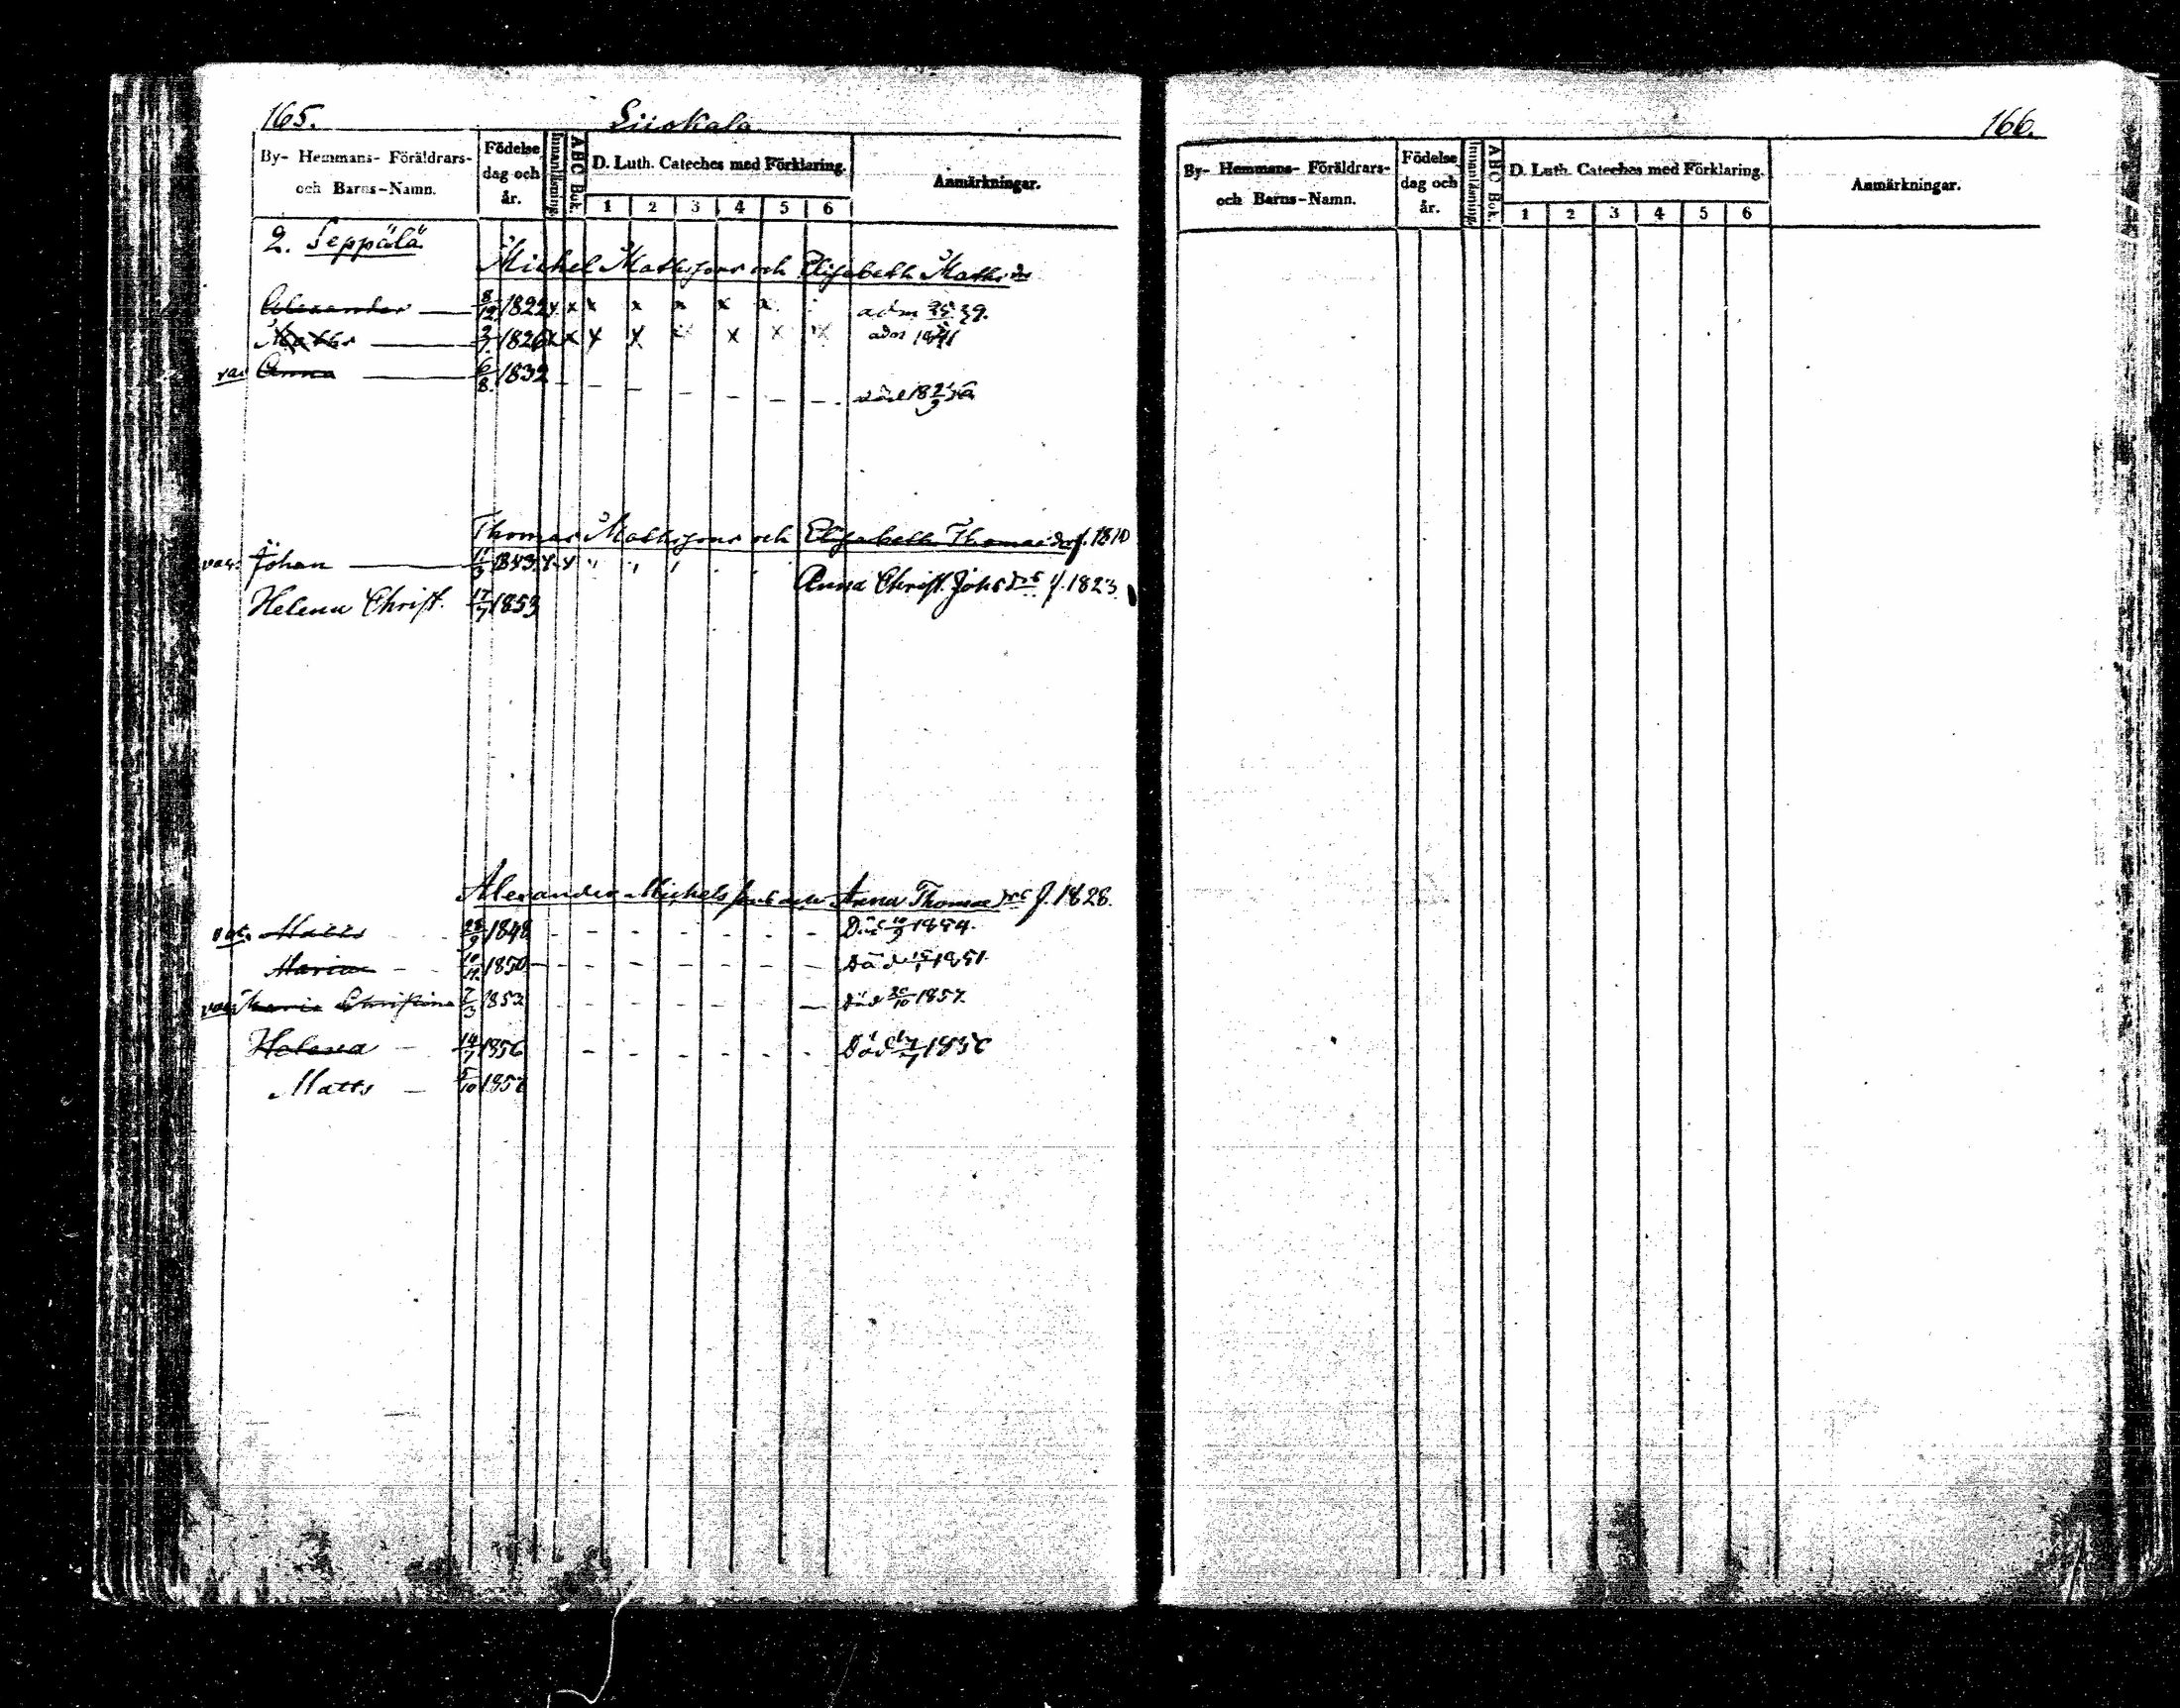 165.
Siiskala
By- Hemmans- Föräldrars- och Barns-Namn.
Födelse dag och år.
Innanläsning.
ABC Bok.
D. Luth. Cateches med Förklaring.
1 2 3 4 5 6
Anmärkningar.
2. Seppälä
Michel Mattsson och Elisabeth Matts
Alexander — 8/12 1822 x x x x x x x adm 39.
Matts — 2/7. 1826 x x x x x x x x adm 1841
vac Anna — 6/8. 1832 - - - - - - död
Thomas Mattsson och Elisabeth Thomaedr f. 1810
vac. Johan — 11/3 1843. x x
Anna Christ. Johsdr f. 1823
Helena Christ. 17/7 1853
Alexander Michelsson och Anna Thomaedr f. 1828.
vac. Matts 28/9 1848 - - - - - - Död 10/9 1854.
Maria - 10/11. 1850 - - - - - - - Död 1851.
vac Maria Christina 7/3 1852 - - - - - — Död 20/10 1857.
Helena - 14/7 1856 - - - - - - Död 1856
Matts - 5/10 1857
166.
By- Hemmans- Föräldrars- och Barns-Namn.
Födelse dag och år.
Innanläsning.
ABC Bok.
D. Luth. Cateches med Förklaring.
1 2 3 4 5 6
Anmärkningar.